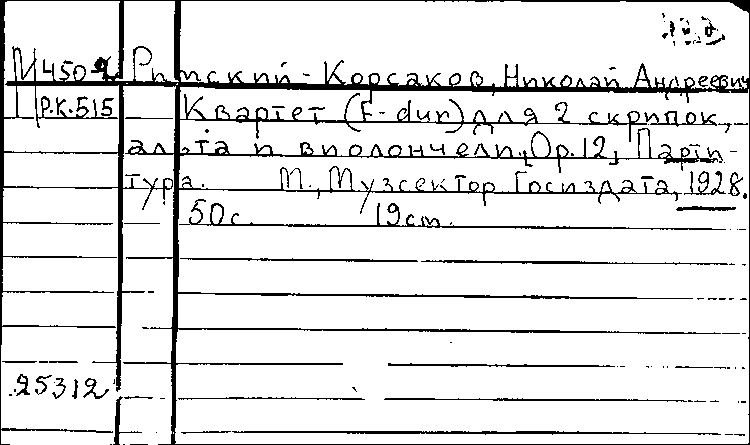 М 450-2 Римский-Корсаков, Николай Андреевич
Р.К.515 Квартет (F-dur) для 2 скрипок,
альта и виолончели, Op.12, Парти-
тура. М., Музсектор Госиздата, 1928.
50с. 19см.
25312